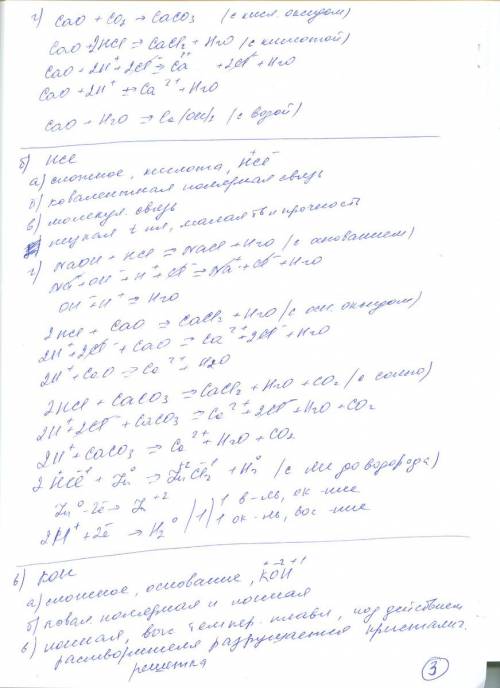 г) CaO + CO₂ → CaCO₃ (с кисл. оксидом)
CaO + 2HCl = CaCl₂ + H₂O (с кислотой)
CaO + 2H⁺ + 2Cl⁻ = Ca²⁺ + 2Cl⁻ + H₂O
CaO + 2H⁺ = Ca²⁺ + H₂O
CaO + H₂O = Ca(OH)₂ (с водой)
б) HCl
а) сложное, кислота, H⁺Cl⁻
б) ковалентная полярная связь
в) молекул. связь
низкая t пл, малая тв и прочность
г) NaOH + HCl = NaCl + H₂O (с основанием)
Na⁺ + OH⁻ + H⁺ + Cl⁻ = Na⁺ + Cl⁻ + H₂O
OH⁻ + H⁺ = H₂O
2HCl + CaO = CaCl₂ + H₂O (с осн. оксидом)
2H⁺ + 2Cl⁻ + CaO = Ca²⁺ + 2Cl⁻ + H₂O
2H⁺ + CaO = Ca²⁺ + H₂O
2HCl + CaCO₃ = CaCl₂ + H₂O + CO₂ (с солью)
2H⁺ + 2Cl⁻ + CaCO₃ = Ca²⁺ + 2Cl⁻ + H₂O + CO₂
2H⁺ + CaCO₃ = Ca²⁺ + H₂O + CO₂
2H⁺Cl⁻¹ + Zn⁰ = Zn⁺²Cl₂⁻¹ + H₂⁰ (с Me до водорода)
Zn⁰ - 2e → Zn⁺² | 1 в-ль, ок-ние
2H⁺ + 2e → H₂⁰ | 1 | 1 ок-ль, вос-ние
в) KOH
а) сложное, основание, K⁺¹O⁻²H⁺¹
б) ковал. полярная и ионная
в) ионная, выс темпер. плавл, под действием
растворителя разрушается кристалич.
решетка
3